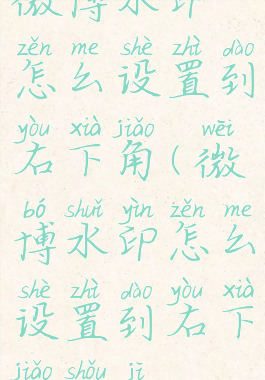 微博水印
zěn me shè zhì dào
怎么设置到
yòu xià jiǎo wēi
右下角(微
bó shuǐ yìn zěn me
博水印怎么
shè zhì dào yòu xià
设置到右下
jiǎo shǒu jī